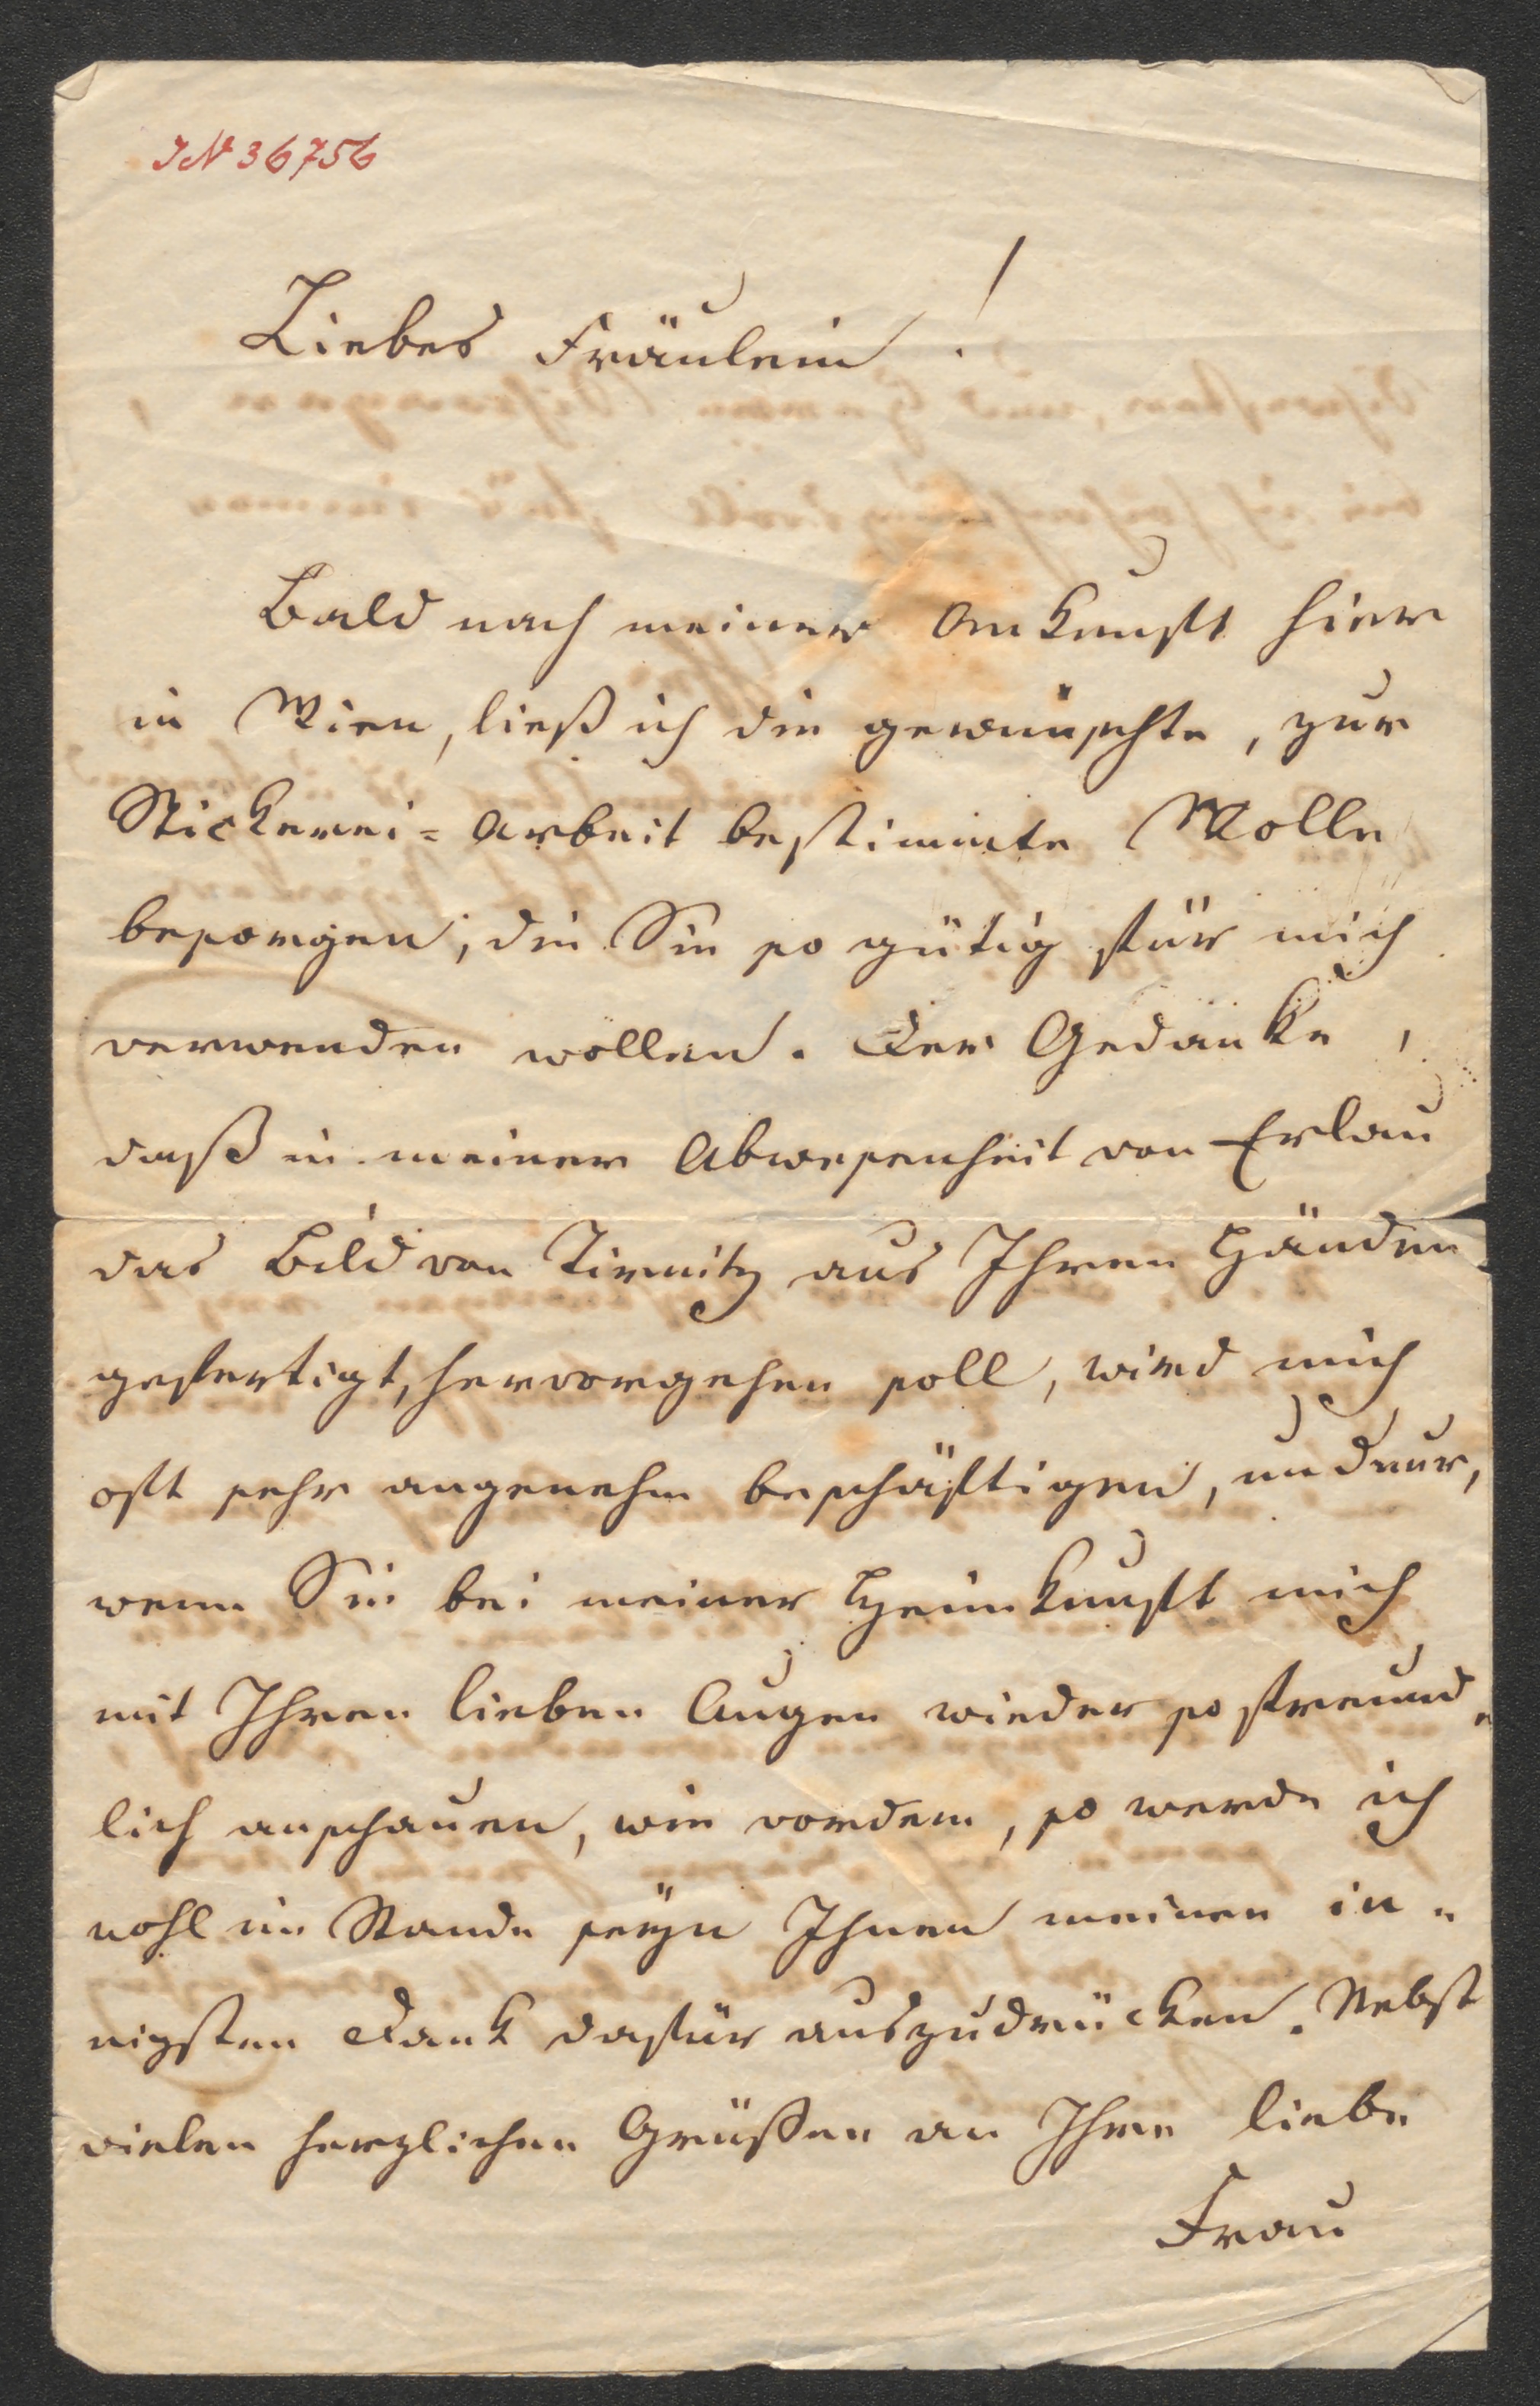 IN 36756
Liebes Fräulein!
Bald nach meiner Ankunft hier
in Wien, ließ ich die gewünschte, zur
Stickerei-Arbeit bestimmte Wolle
besorgen, die Sie so gütig für mich
verwenden wollen. Der Gedanke,
daß in meiner Abwesenheit von Erlau
das Bild von Tirnitz aus Ihren Händen
gefertigt, hervorgehen soll, wird mich
oft sehr angenehm beschäftigen, und nur,
wenn Sie bei meiner Heimkunft mich
mit Ihren lieben Augen wieder so freund-
lich anschauen, wie vordem, so werde ich
wohl im Stande seÿn Ihnen meinen in-
nigsten Dank dafür auszudrücken. Nebst
vielen herzlichen Grüßen an Ihre liebe
Frau